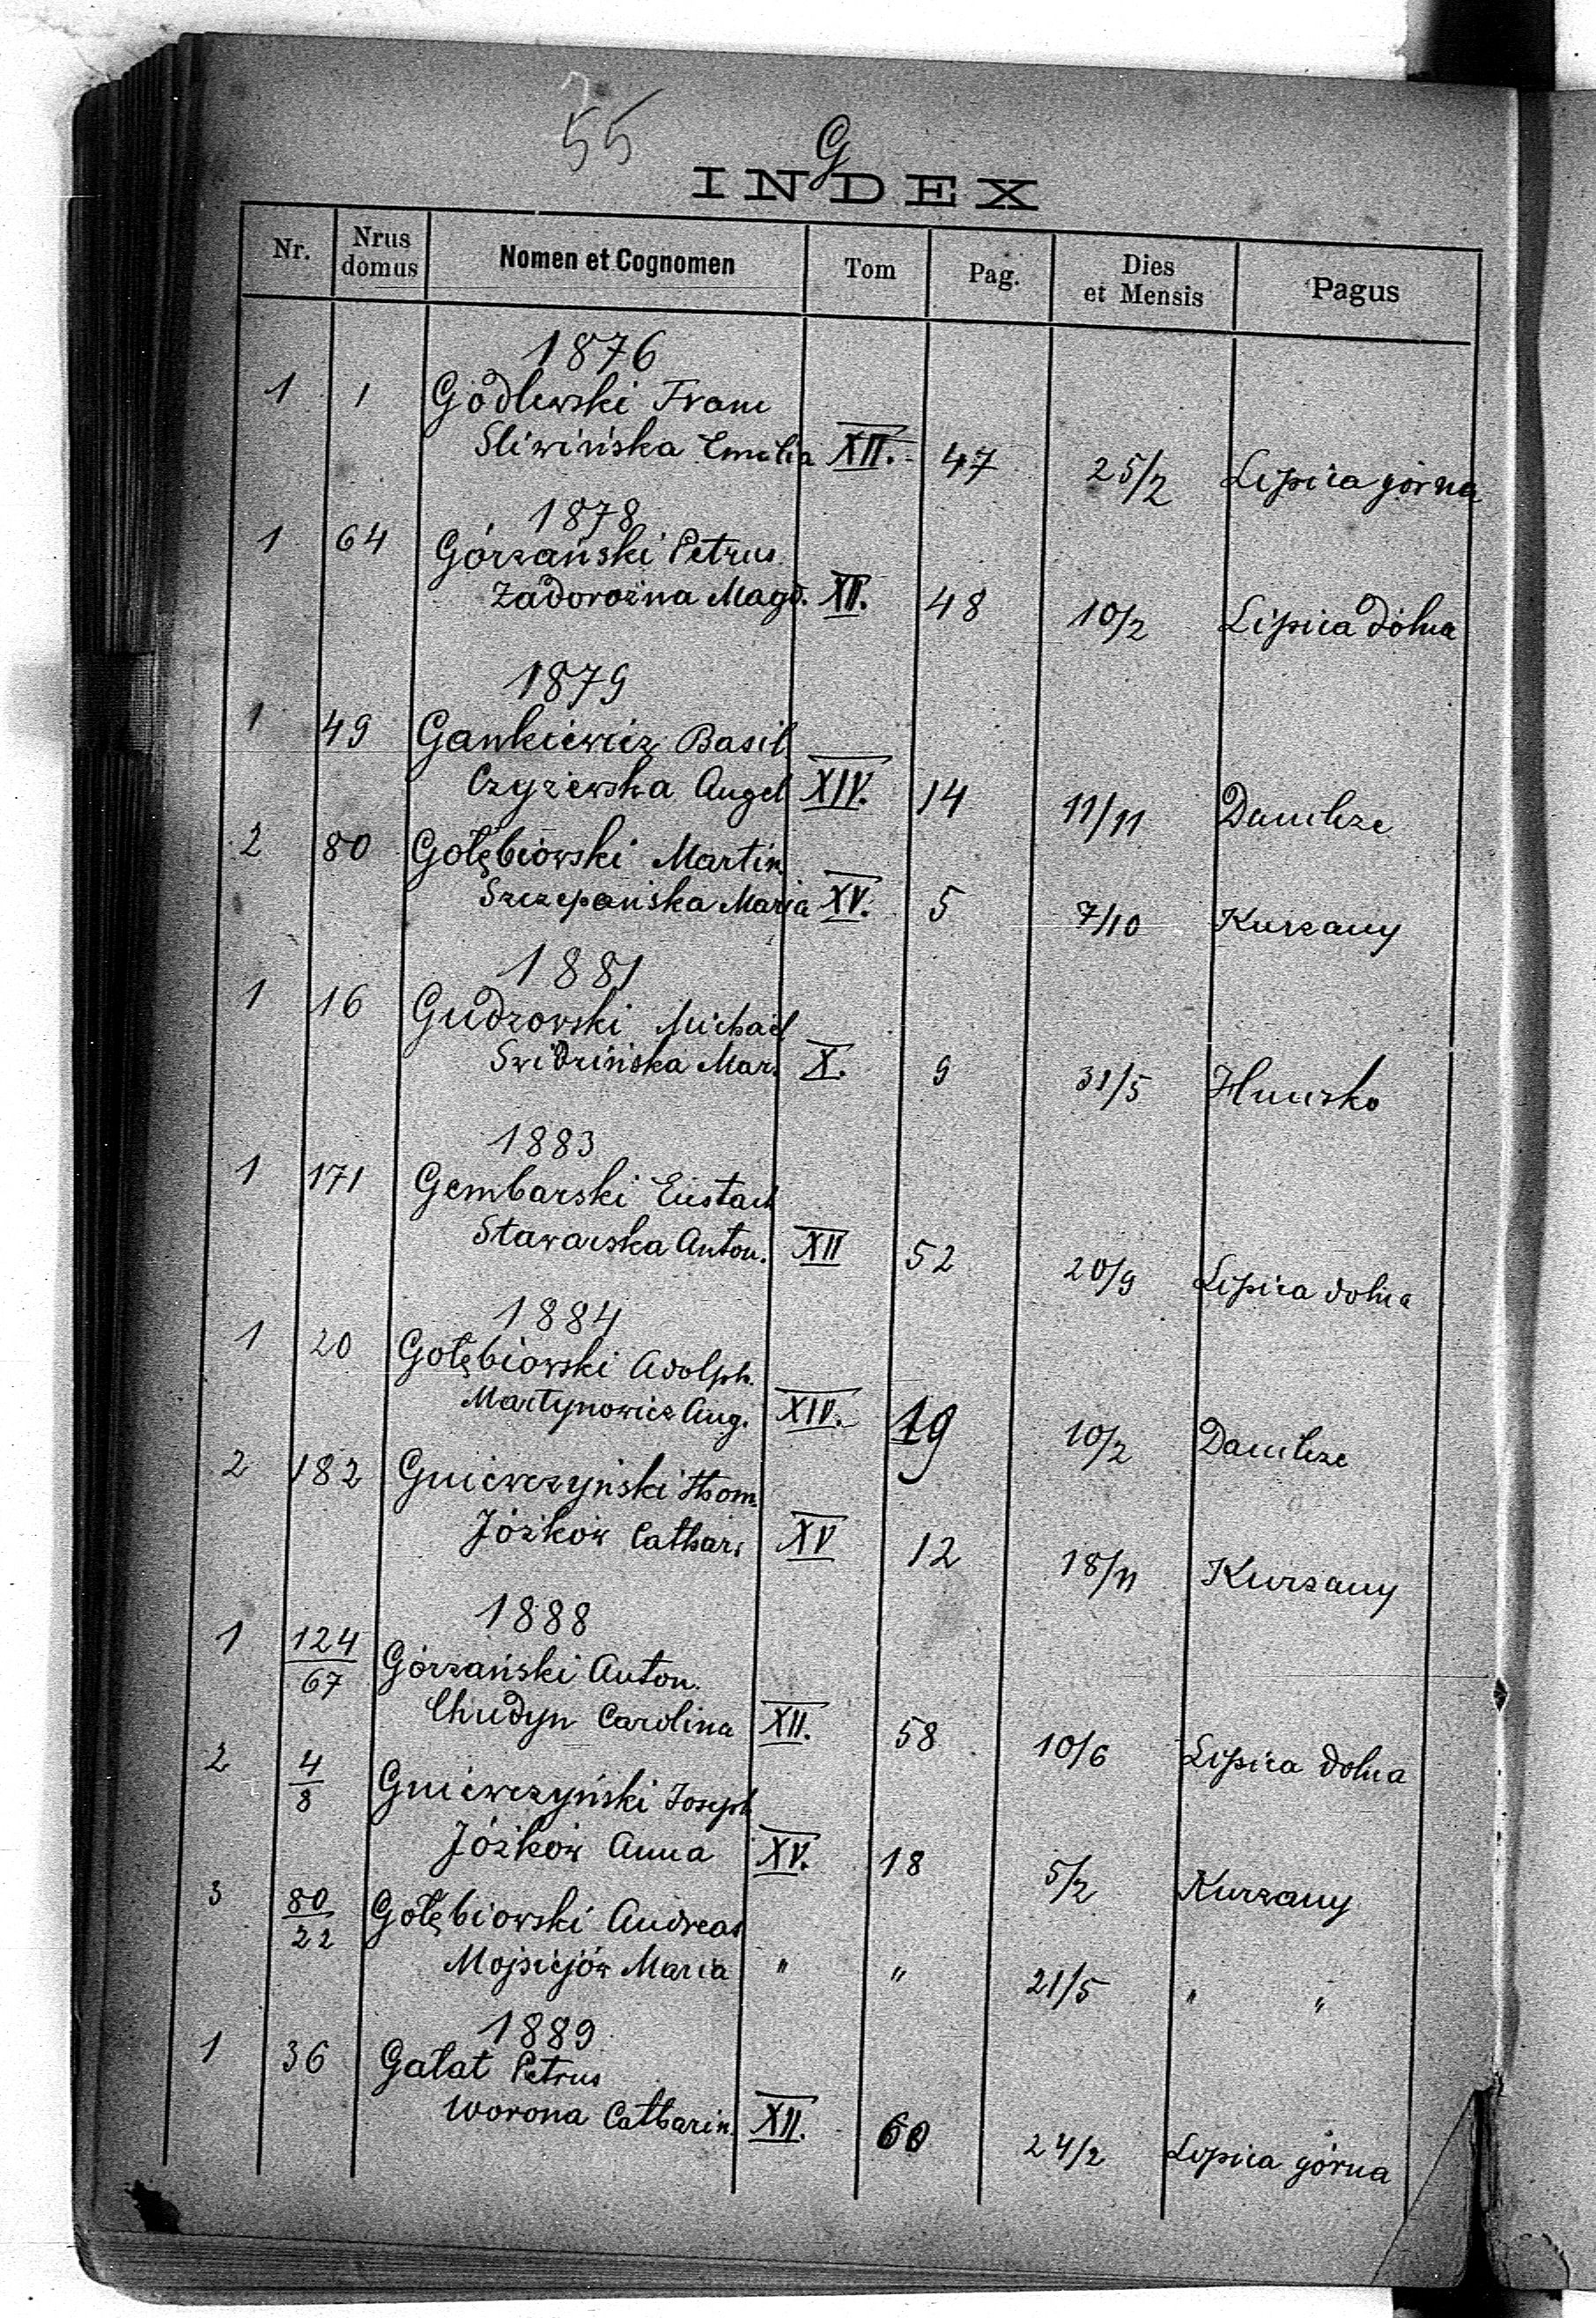 55
G
INDEX
Nr. Nrus domus Nomen et Cognomen Tom Pag. Dies et Mensis Pagus
1876
1 1 Godlewski Franc
Sliwińska Emilia XII. 47 25/2 Lipica górna
1878
1 64 Górzański Petrus
Zadorożna Magd. XII. 48 10/2 Lipica dolna
1879
1 49 Gankiewicz Basil
Czyżewska Angel XIV. 14 11/11 Danilcze
2 80 Gołębiowski Martin
Szczepańska Maria XV. 5 7/10 Kurzany
1881
1 16 Gudzowski Michael
Swidzińska Mar. X. 9 31/5
1883
1 171 Gembarski Eustach
Stawarska Anton. XII 52 20/9 Lipica dolna
1884
1 20 Gołębiowski Adolph.
Martynowicz Ang. XIV. 19 10/2 Danilcze
2 182 Gniewczyński Thom.
Jóźków Cathar. XV 12 18/11 Kurzany
1888
1 124/67 Górzański Anton.
Chudyn Carolina XII. 58 10/6 Lipica dolna
2 4/8 Gniewczyński Joseph
Jóźków Anna XV. 18 5/2 Kurzany
3 80/22 Gołębiowski Andreas
Mojsiejów Maria " " 21/5 " "
1889
1 36 Gałat Petrus
Worona Catharin. XII. 60 24/2 Lipica górna